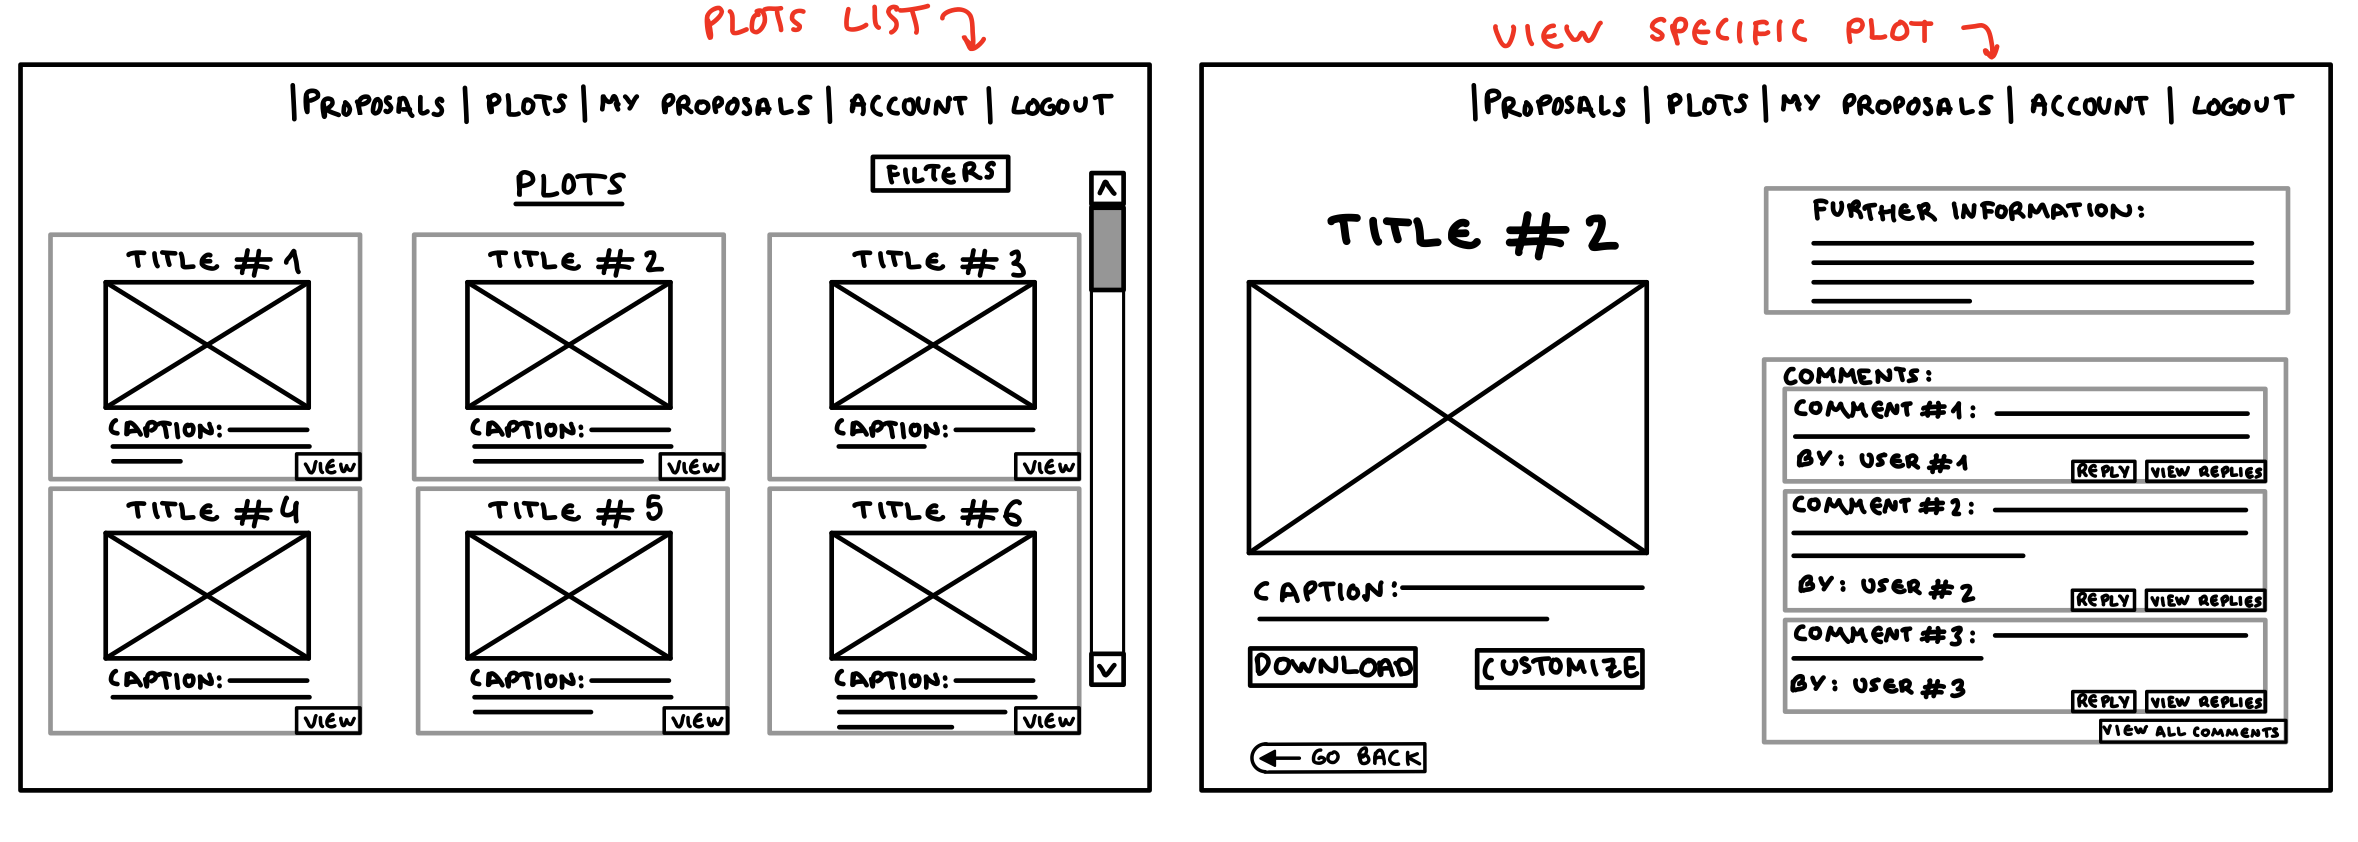 PLOTS LIST
|PROPOSALS | PLOTS | MY PROPOSALS | ACCOUNT | LOGOUT
PLOTS
FILTERS
TITLE #1
CAPTION:
VIEW
TITLE #2
CAPTION:
VIEW
TITLE #3
CAPTION:
VIEW
TITLE #4
CAPTION:
VIEW
TITLE #5
CAPTION:
VIEW
TITLE #6
CAPTION:
VIEW
VIEW SPECIFIC PLOT
|PROPOSALS | PLOTS | MY PROPOSALS | ACCOUNT | LOGOUT
TITLE #2
CAPTION:
DOWNLOAD
CUSTOMIZE
GO BACK
FURTHER INFORMATION:
COMMENTS:
COMMENT #1:
BY: USER #1
REPLY
VIEW REPLIES
COMMENT #2:
BY: USER #2
REPLY
VIEW REPLIES
COMMENT #3:
BY: USER #3
REPLY
VIEW REPLIES
VIEW ALL COMMENTS